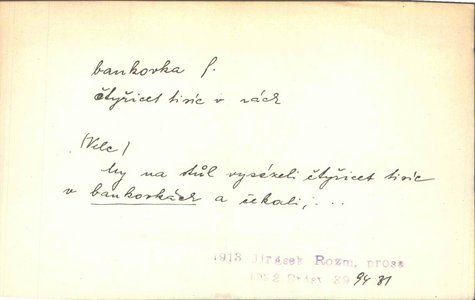 bankovka f.
čtyřicet tisíc v -ách
(Velc)
by na stůl vysázeli čtyřicet tisíc
v bankovkách a čekali, ...
1913 Jirásek Rozm. prosa